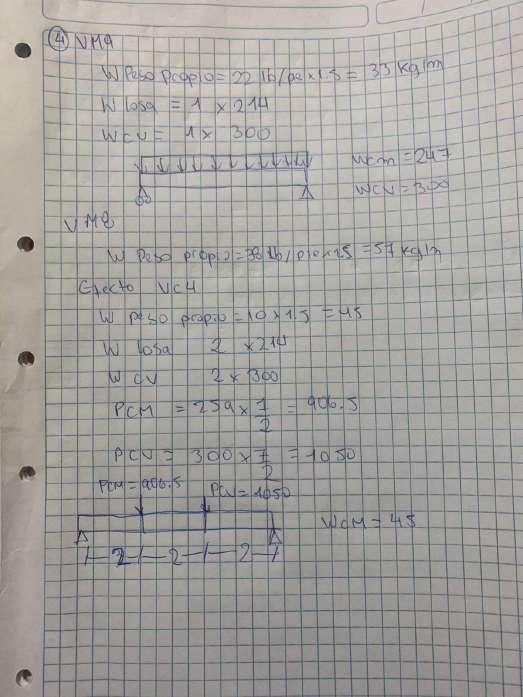 ④ VM9
W Peso propio = 22 lb/pie x 1.5 = 33 kg/m
W losa = 1 x 214
WCV = 1 x 300
WCM = 247
WCV = 300
VM8
W Peso propio = 38 lb/pie x 1.5 = 57 kg/m
Efecto VC4
W peso propio = 10 x 1.5 = 45
W losa 2 x 214
W CV 2 x 300
PCM = 259 x 7/2 = 906.5
PCV = 300 x 7/2 = 1050
PCM = 906.5 PCV = 1050
WCM = 45
2 2 2